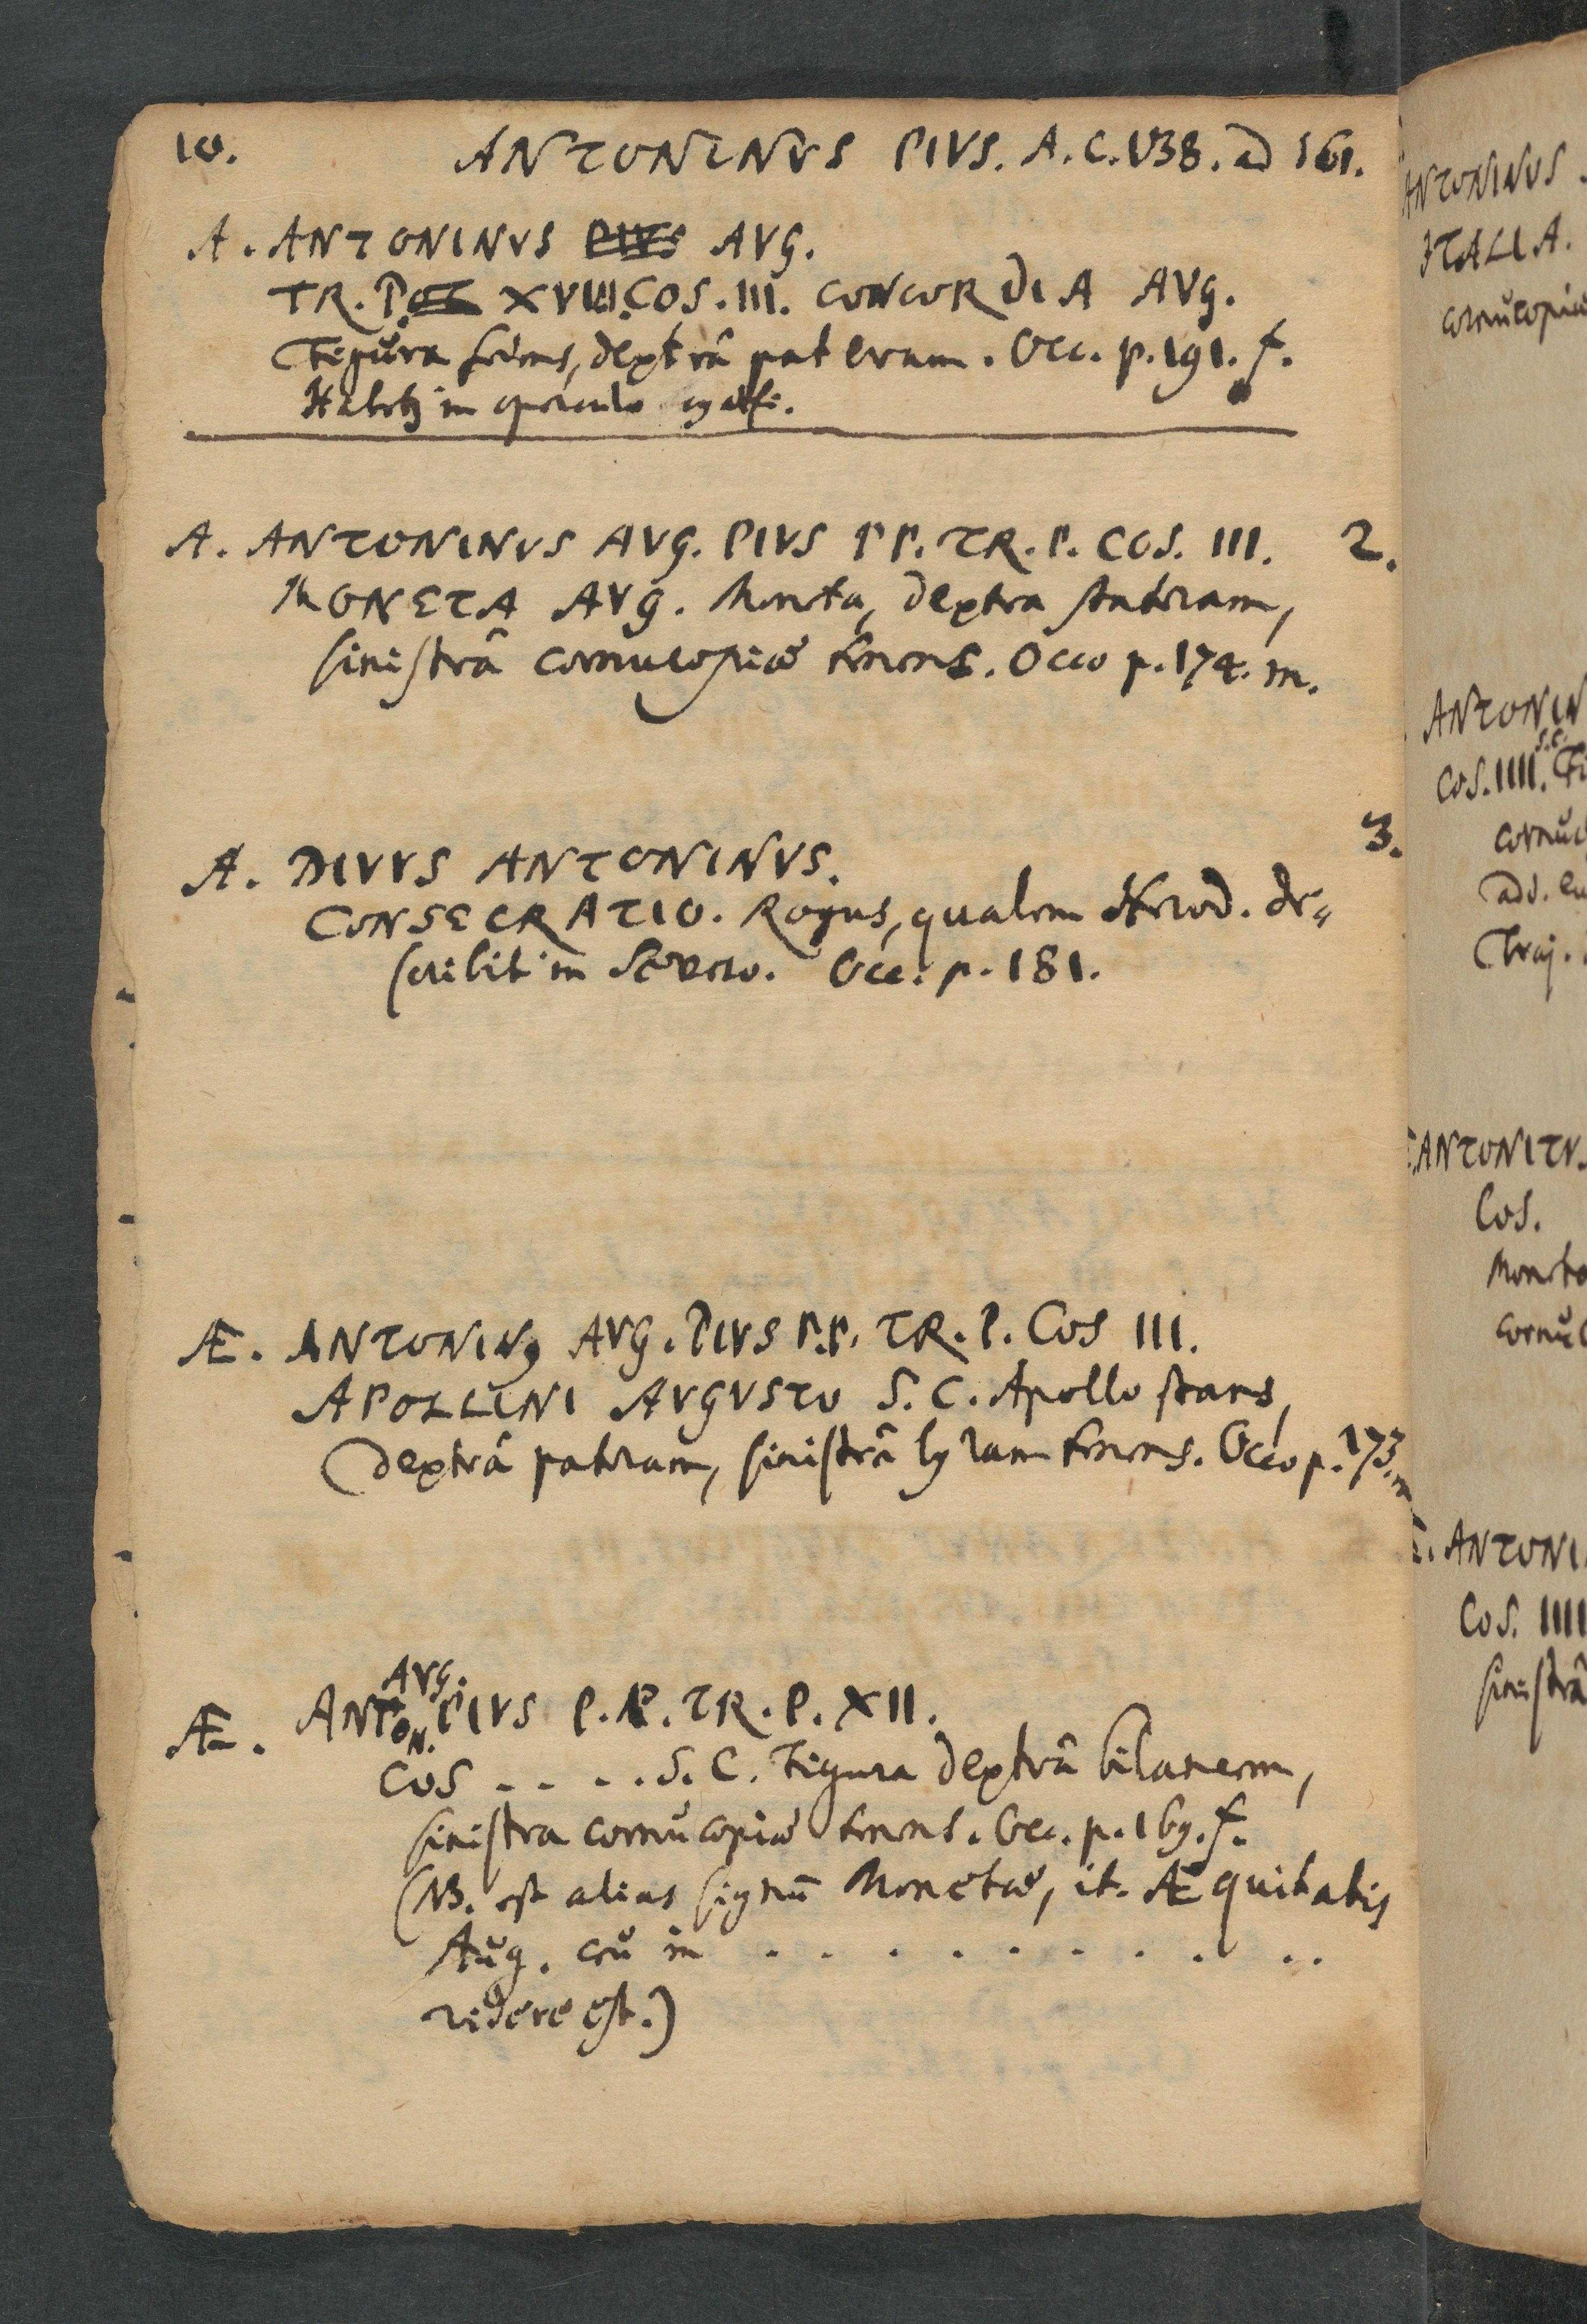 10. ANTONINVS PIVS. A. C. 138. ad 161.
A. ANTONINVS PIVS AVG.
TR. P. XVIII. COS. III. CONCORDIA AVG.
Figŭra sedens, dextrâ pateram. Occ. p. 191. f.
Habetz in operculo cyathi.
A. ANTONINVS AVG. PIVS PP. TR. P. COS. III. 2.
MONETA AVG. Moneta, dextra stateram,
sinistrâ cornucopiæ tenens. Occo p. 174. m.
3.
A. DIVVS ANTONINVS.
CONSECRATIO. Rogus, qualem Herod. de-
scribit in Severo. Occ. p. 181.
Æ. ANTONINꝰ AVG. PIVS P.P. TR. P. COS III.
APOLLINI AVGVSTO S. C. Apollo stans,
dextrâ pateram, sinistrâ lyram tenens. Occo p. 173. m
AVG.
Æ. ANTON. PIVS P. P. TR. P. XII.
COS . . . . S. C. Figura dextrâ bilancem,
sinistra cornŭcopiæ tenens. Occ. p. 169. f.
(NB. est alias signū Monetæ, it. Æquitatis
Aŭg. ceŭ in . . . . . . . . . .
videre est.)
ANTONINVS
ITALIA.
cornŭcopiæ
ANTONIN
S.C.
COS. IIII. Fi
cornŭc
adv. eu
Traj.
ANTONI
COS.
Moneta
cornŭc
ANTONI
COS. IIII
sinistrâ